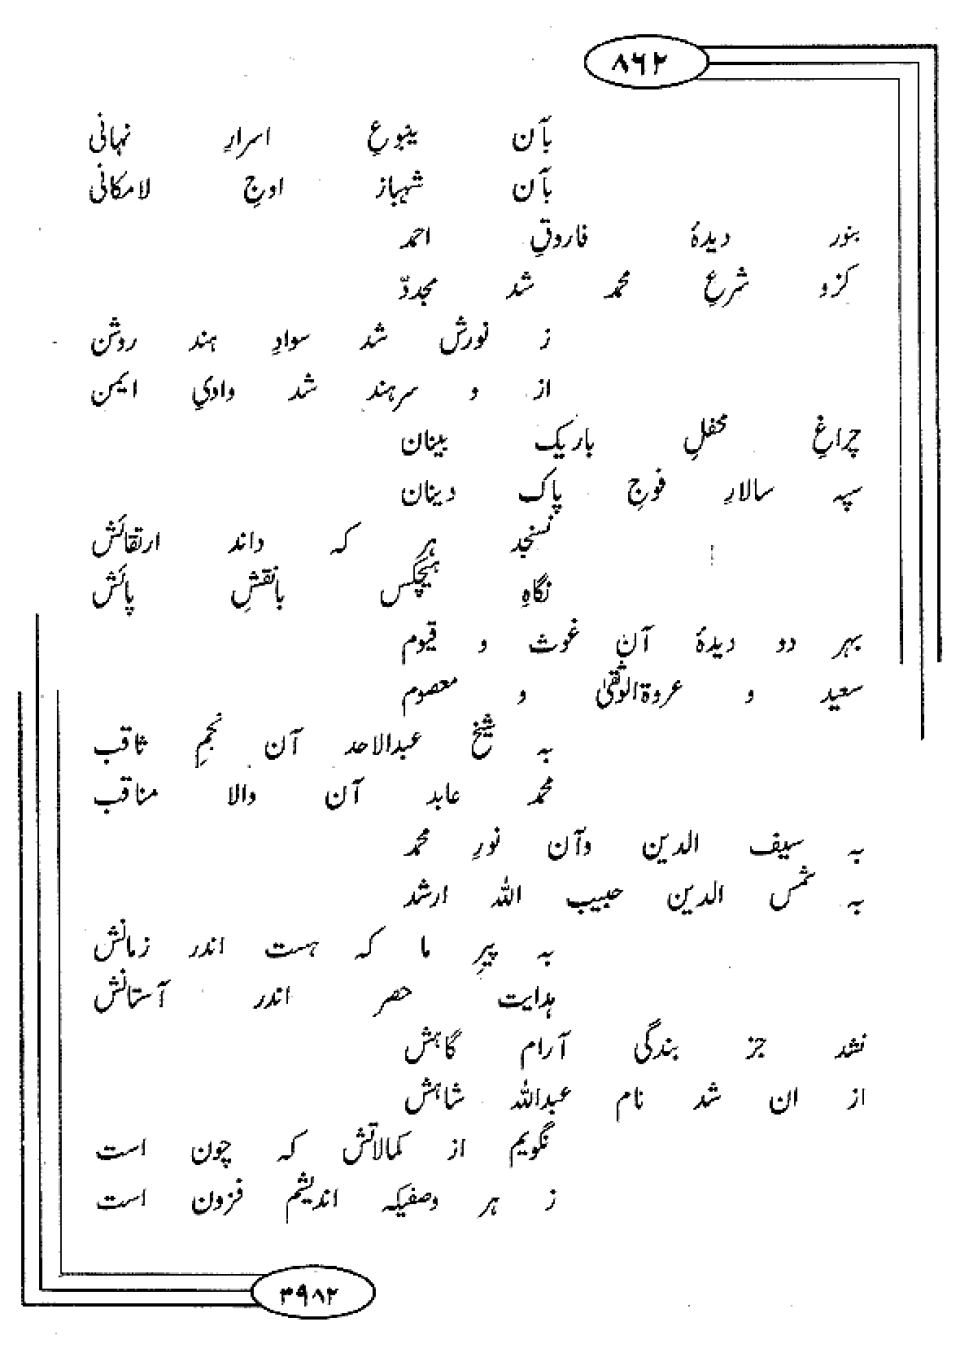 ۸۶۲
بآن ینبوعِ اسرارِ نہانی
بآن شہباز اوجِ لامکانی
بنور دیدۂ فاروقِ احمد
کزو شرعِ محمد شد مجددّ
ز نورش شد سوادِ ہند روشن
از و سرہند شد وادیِ ایمن
چراغِ محفلِ باریک بینان
سپہ سالارِ فوجِ پاک دینان
نسنجد ہر کہ داند ارتقائش
نگاہِ ہیچکس بانقشِ پائش
بہر دو دیدۂ آن غوث و قیوم
سعید و عروۃالوثقیٰ و معصوم
بہ شیخ عبدالاحد آن نجمِ ثاقب
محمد عابد آن والا مناقب
بہ سیف الدین وآن نورِ محمد
بہ شمس الدین حبیب اللہ ارشد
بہ پیرِ ما کہ ہست اندر زمانش
ہدایت حصر اندر آستانش
نشد جز بندگی آرام گاہش
از ان شد نام عبداللہ شاہش
نگویم از کمالاتش کہ چون است
ز ہر وصفیکہ اندیشم فزون است
۳۹۸۲